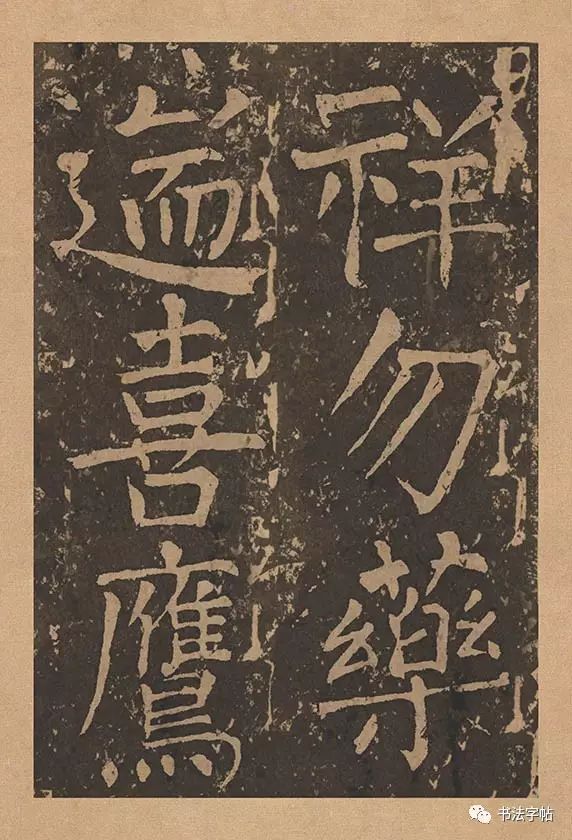 祥勿藥
遄喜鷹
书法字帖